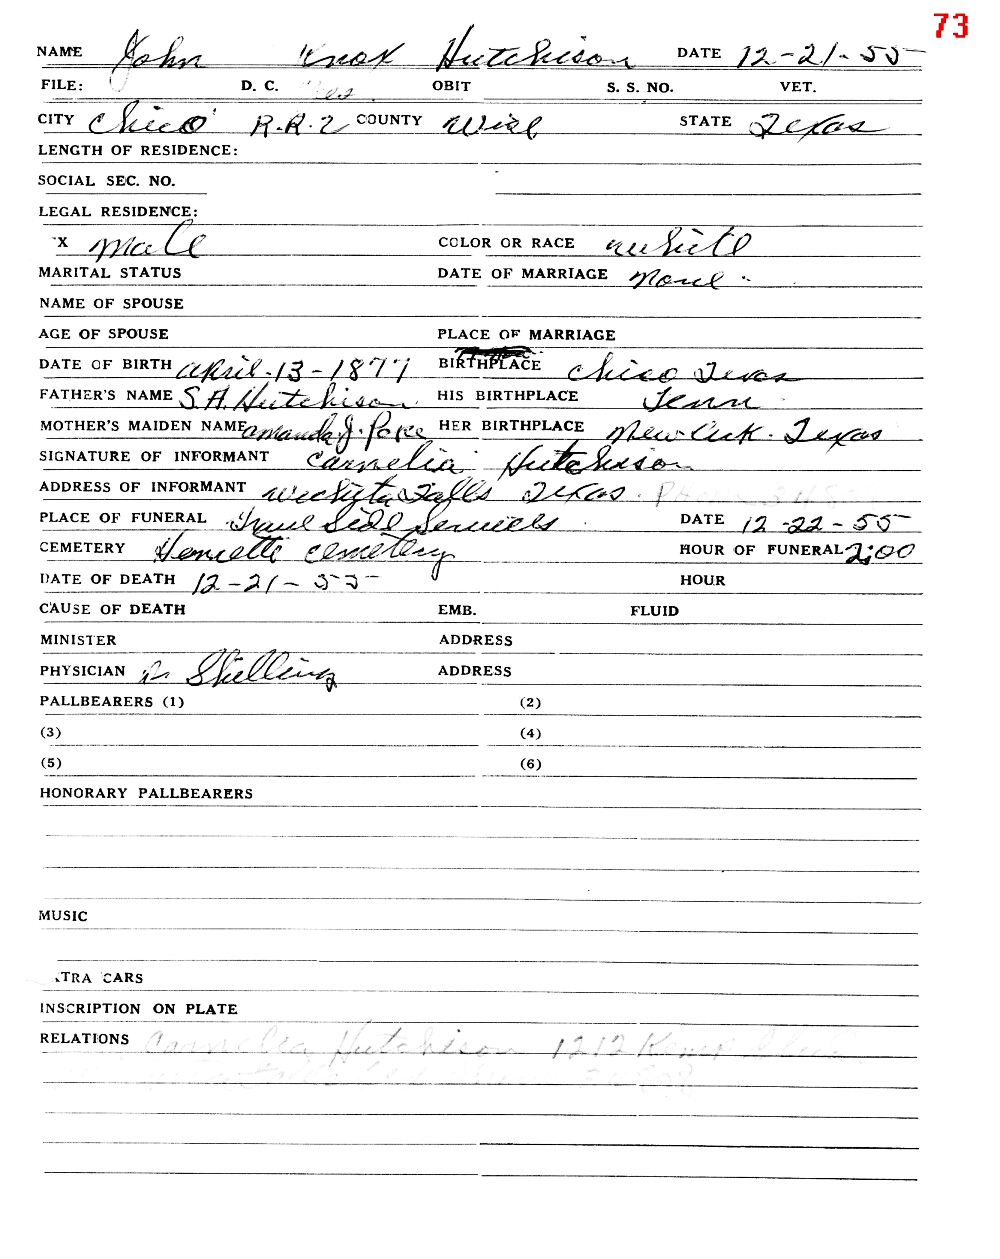 73
NAME John Knox Hutchison DATE 12-21-55
FILE: D. C. yes OBIT S. S. NO. VET.
CITY Chico R.R.2 COUNTY Wise STATE Texas
LENGTH OF RESIDENCE:
SOCIAL SEC. NO.
LEGAL RESIDENCE:
X male COLOR OR RACE white
MARITAL STATUS DATE OF MARRIAGE None
NAME OF SPOUSE
AGE OF SPOUSE PLACE OF MARRIAGE
DATE OF BIRTH April-13-1877 BIRTHPLACE Chico Texas
FATHER'S NAME S.A. Hutchison HIS BIRTHPLACE Tenn
MOTHER'S MAIDEN NAME Amanda J. HER BIRTHPLACE New Texas
SIGNATURE OF INFORMANT Carnelia Hutchison
ADDRESS OF INFORMANT Wichita Falls Texas.
PLACE OF FUNERAL Grave Side Services DATE 12-22-55
CEMETERY Henrietta cemetery HOUR OF FUNERAL 2:00
DATE OF DEATH 12-21-55 HOUR
CAUSE OF DEATH EMB. FLUID
MINISTER ADDRESS
PHYSICIAN Dr Shilling ADDRESS
PALLBEARERS (1) (2)
(3) (4)
(5) (6)
HONORARY PALLBEARERS
MUSIC
TRA CARS
INSCRIPTION ON PLATE
RELATIONS Carnelia Hutchison 1212 Kemp